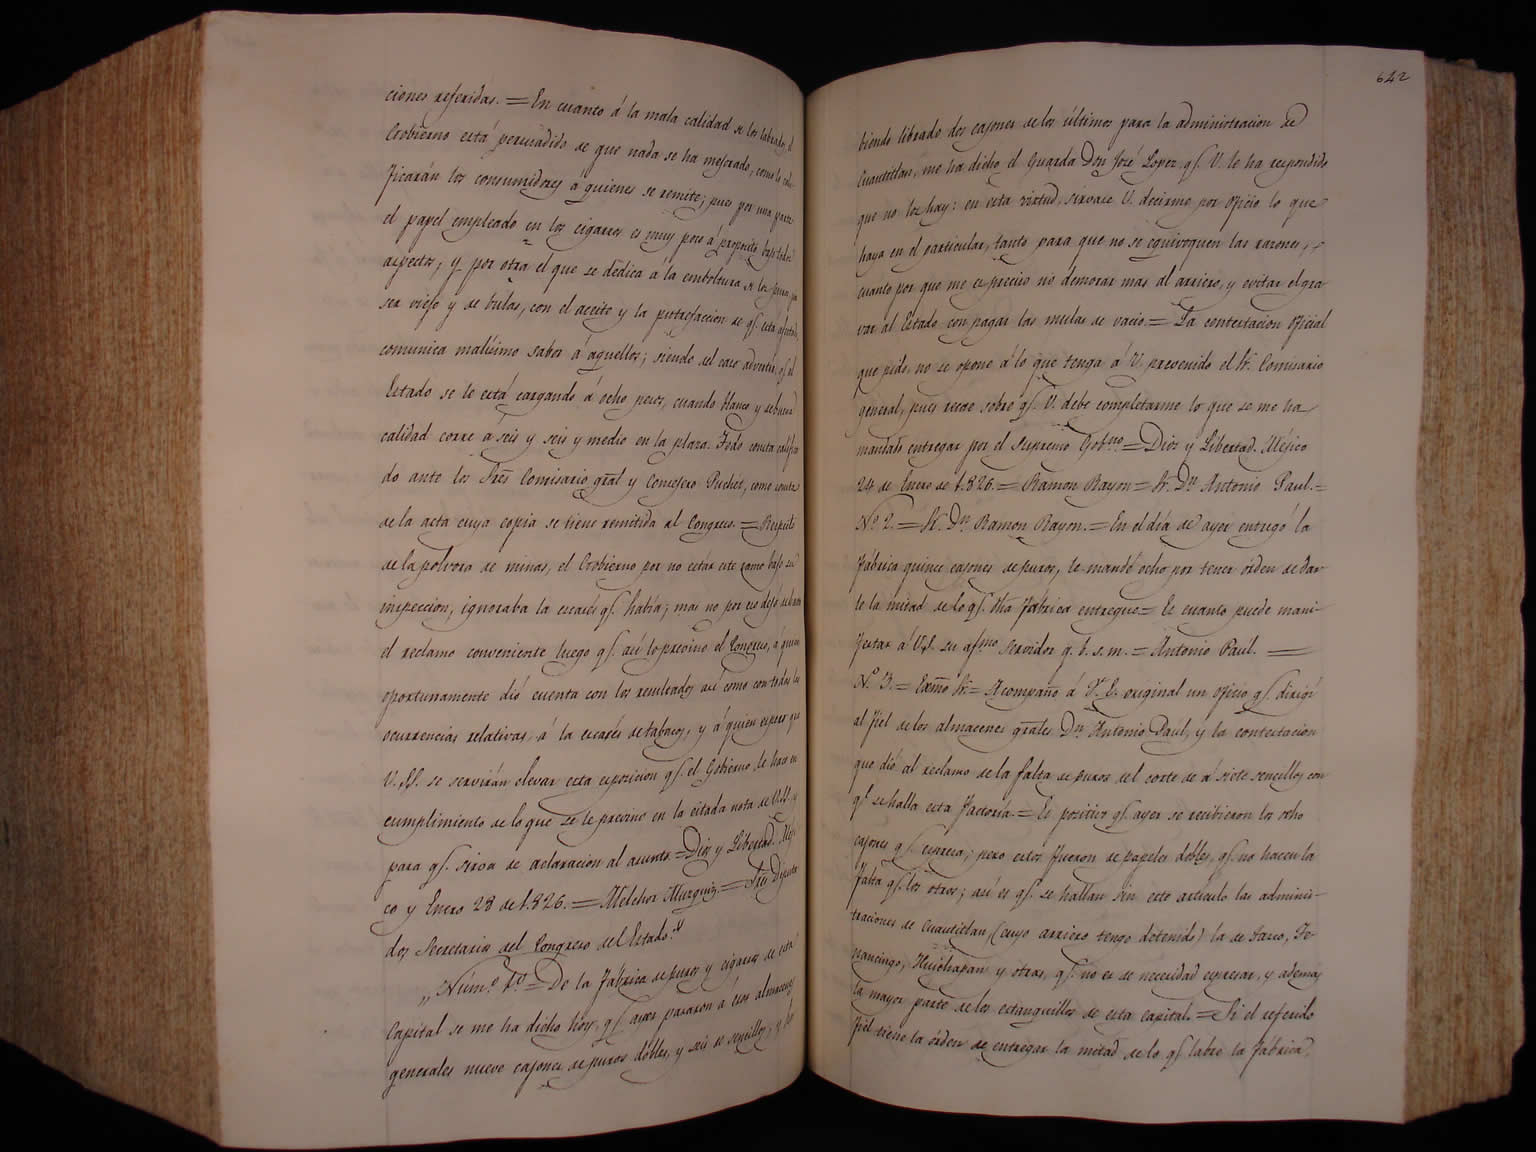 ciones referidas. = En cuanto á la mala calidad de los labrados, el
Gobierno está persuadido de que nada se ha mejorado, como lo cali-
ficarán los consumidores á quienes se remite; pues por una parte
el papel empleado en los cigarros es muy poco á proposito bajo todos
aspectos; y por otra el que se dedica á la emboltura de los puros, por
ser viejo y de bulas, con el aceite y la putrefaccion de qe. está
comunica malísimo sabor á aquellos; siendo del caso advertir, qe. al
Estado se le está cargando á ocho pesos, cuando blanco y de buena
calidad corre á seis y seis y medio en la plaza. Todo consta califica
do ante los Sres. Comisario gral y Consejero Puchet, como consta
de la acta cuya copia se tiene remitida al Congreso. = Respecto
de la polvora de minas, el Gobierno por no estar este ramo bajo su
inspeccion, ignoraba la escasés qe. había; mas no por eso dejó de hacer
el reclamo conveniente luego qe. así lo previno el Congreso, á quien
oportunamente dió cuenta con los resultados así como con todas las
ocurrencias relativas á la escasés de tabacos, y á quien espero que
V. SS. se servirán elevar esta exposicion qe. el Gobierno le hace en
cumplimiento de lo que se le previno en la citada nota de V.SS. y
para qe. sirva de aclaracion al asunto. = Dios y Libertad. Méji-
co y Enero 28 de 1.826. = Melchor Muzquiz. = Sres. Diputa
dos Secretarios del Congreso del Estado."
"Núm.o 1.o = De la fábrica de puros y cigarros de esta
Capital se me ha dicho hoy, qe. ayer pasaron á esos almacenes
generales nueve cajones de puros dobles, y seis de sencillos, y ha
642
biendo librado dos cajones de los últimos para la administracion de
Cuautitlan, me ha dicho el Guarda Don José Lopez qe. V. le ha respondido
que no los hay: en esta virtud, sirvase V. decirme por oficio lo que
haya en el particular, tanto para que no se equivoquen las razones,
cuanto por que me es preciso no demorar mas al arriero, y evitar el gra
var al Estado con pagar las mulas de vacio. = La contestacion oficial
que pido, no se opone á lo que tenga á V. prevenido el Sr. Comisario
general, pues recae sobre qe. V. debe completarme lo que se me ha
mandado entregar por el Supremo Gobno. = Dios y Libertad. Méjico
24 de Enero de 1.826. = Ramon Rayon = Sr. Dn. Antonio Paul. =
No. 2. = Sr. Dn. Ramon Rayon. = En el día de ayer entregó la
fábrica quince cajones de puros, le mandé ocho por tener órden de dar
le la mitad de lo qe. dha fabrica entregue. = Es cuanto puede mani-
festar á V.S. su afmo. servidor q. b. s. m. = Antonio Paúl. =
No. 3. = Exmo Sr. = Acompaño á V. E. original un oficio qe. dirigí
al fiel de los almacenes grales. Dn. Antonio Paúl, y la contestacion
que dió al reclamo de la falta de puros del corte de á siete sencillos con
qe. se halla esta factoría. = Es positivo qe. ayer se recibieron los ocho
cajones qe. expresa; pero estos fueron de papeles dobles, qe. no hacen la
falta qe. los otros; así es qe. se hallan sin este artículo las adminis-
traciones de Cuautitlan, (cuyo arriero tengo detenido) la de Taxco, Te-
nancingo, Huichapan y otras, qe. no es de necesidad expresar, y ademas
la mayor parte de los estanquillos de esta capital. = Si el referido
fiel tiene la órden de entregar la mitad de lo qe. labre la fábrica,